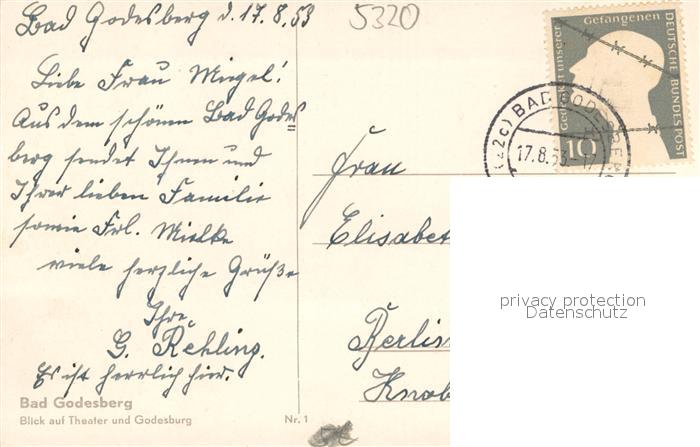 Bad Godesberg d. 17.8.53
5320
Liebe Frau Miegel!
Aus dem schönen Bad Godes
berg sendet Ihnen und
Ihrer lieben Familie
sowie Frl. Mielke
viele herzliche Grüße
Ihre
G. Rehling.
Es ist herrlich hier.
Bad Godesberg
Blick auf Theater und Godesburg
Nr. 1
Gedenket unserer Gefangenen
DEUTSCHE BUNDESPOST
10
(22c) BAD GODESBERG
17.8.53-17
Frau
Elisabet
Berlin
Knob
privacy protection
Datenschutz